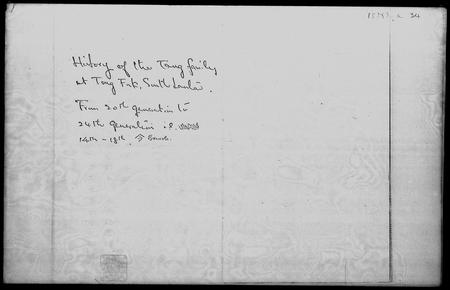 History of the Tang family
at Tong Fat, South Lantau.
From 20th generation to
24th generation i.e.
14th - 18th